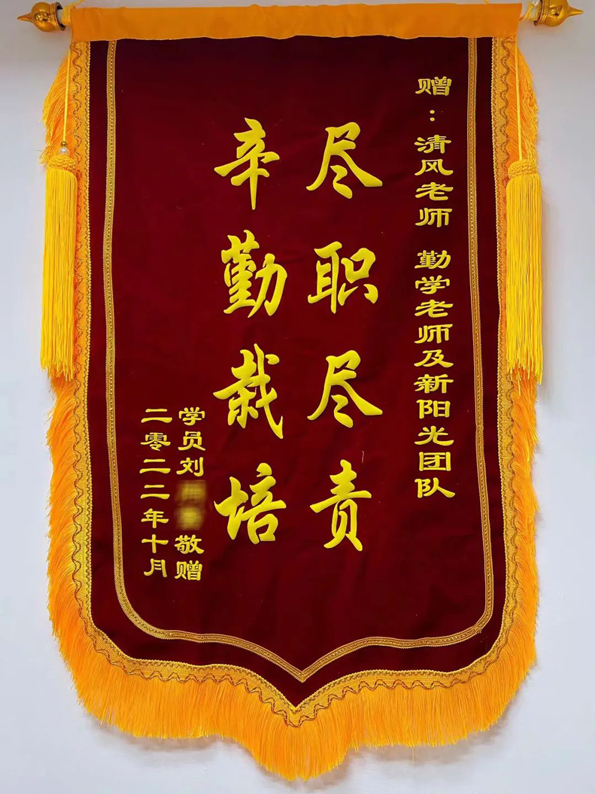 赠：清风老师 勤学老师及新阳光团队
尽职尽责
辛勤栽培
学员刘 敬赠
二零二二年十月